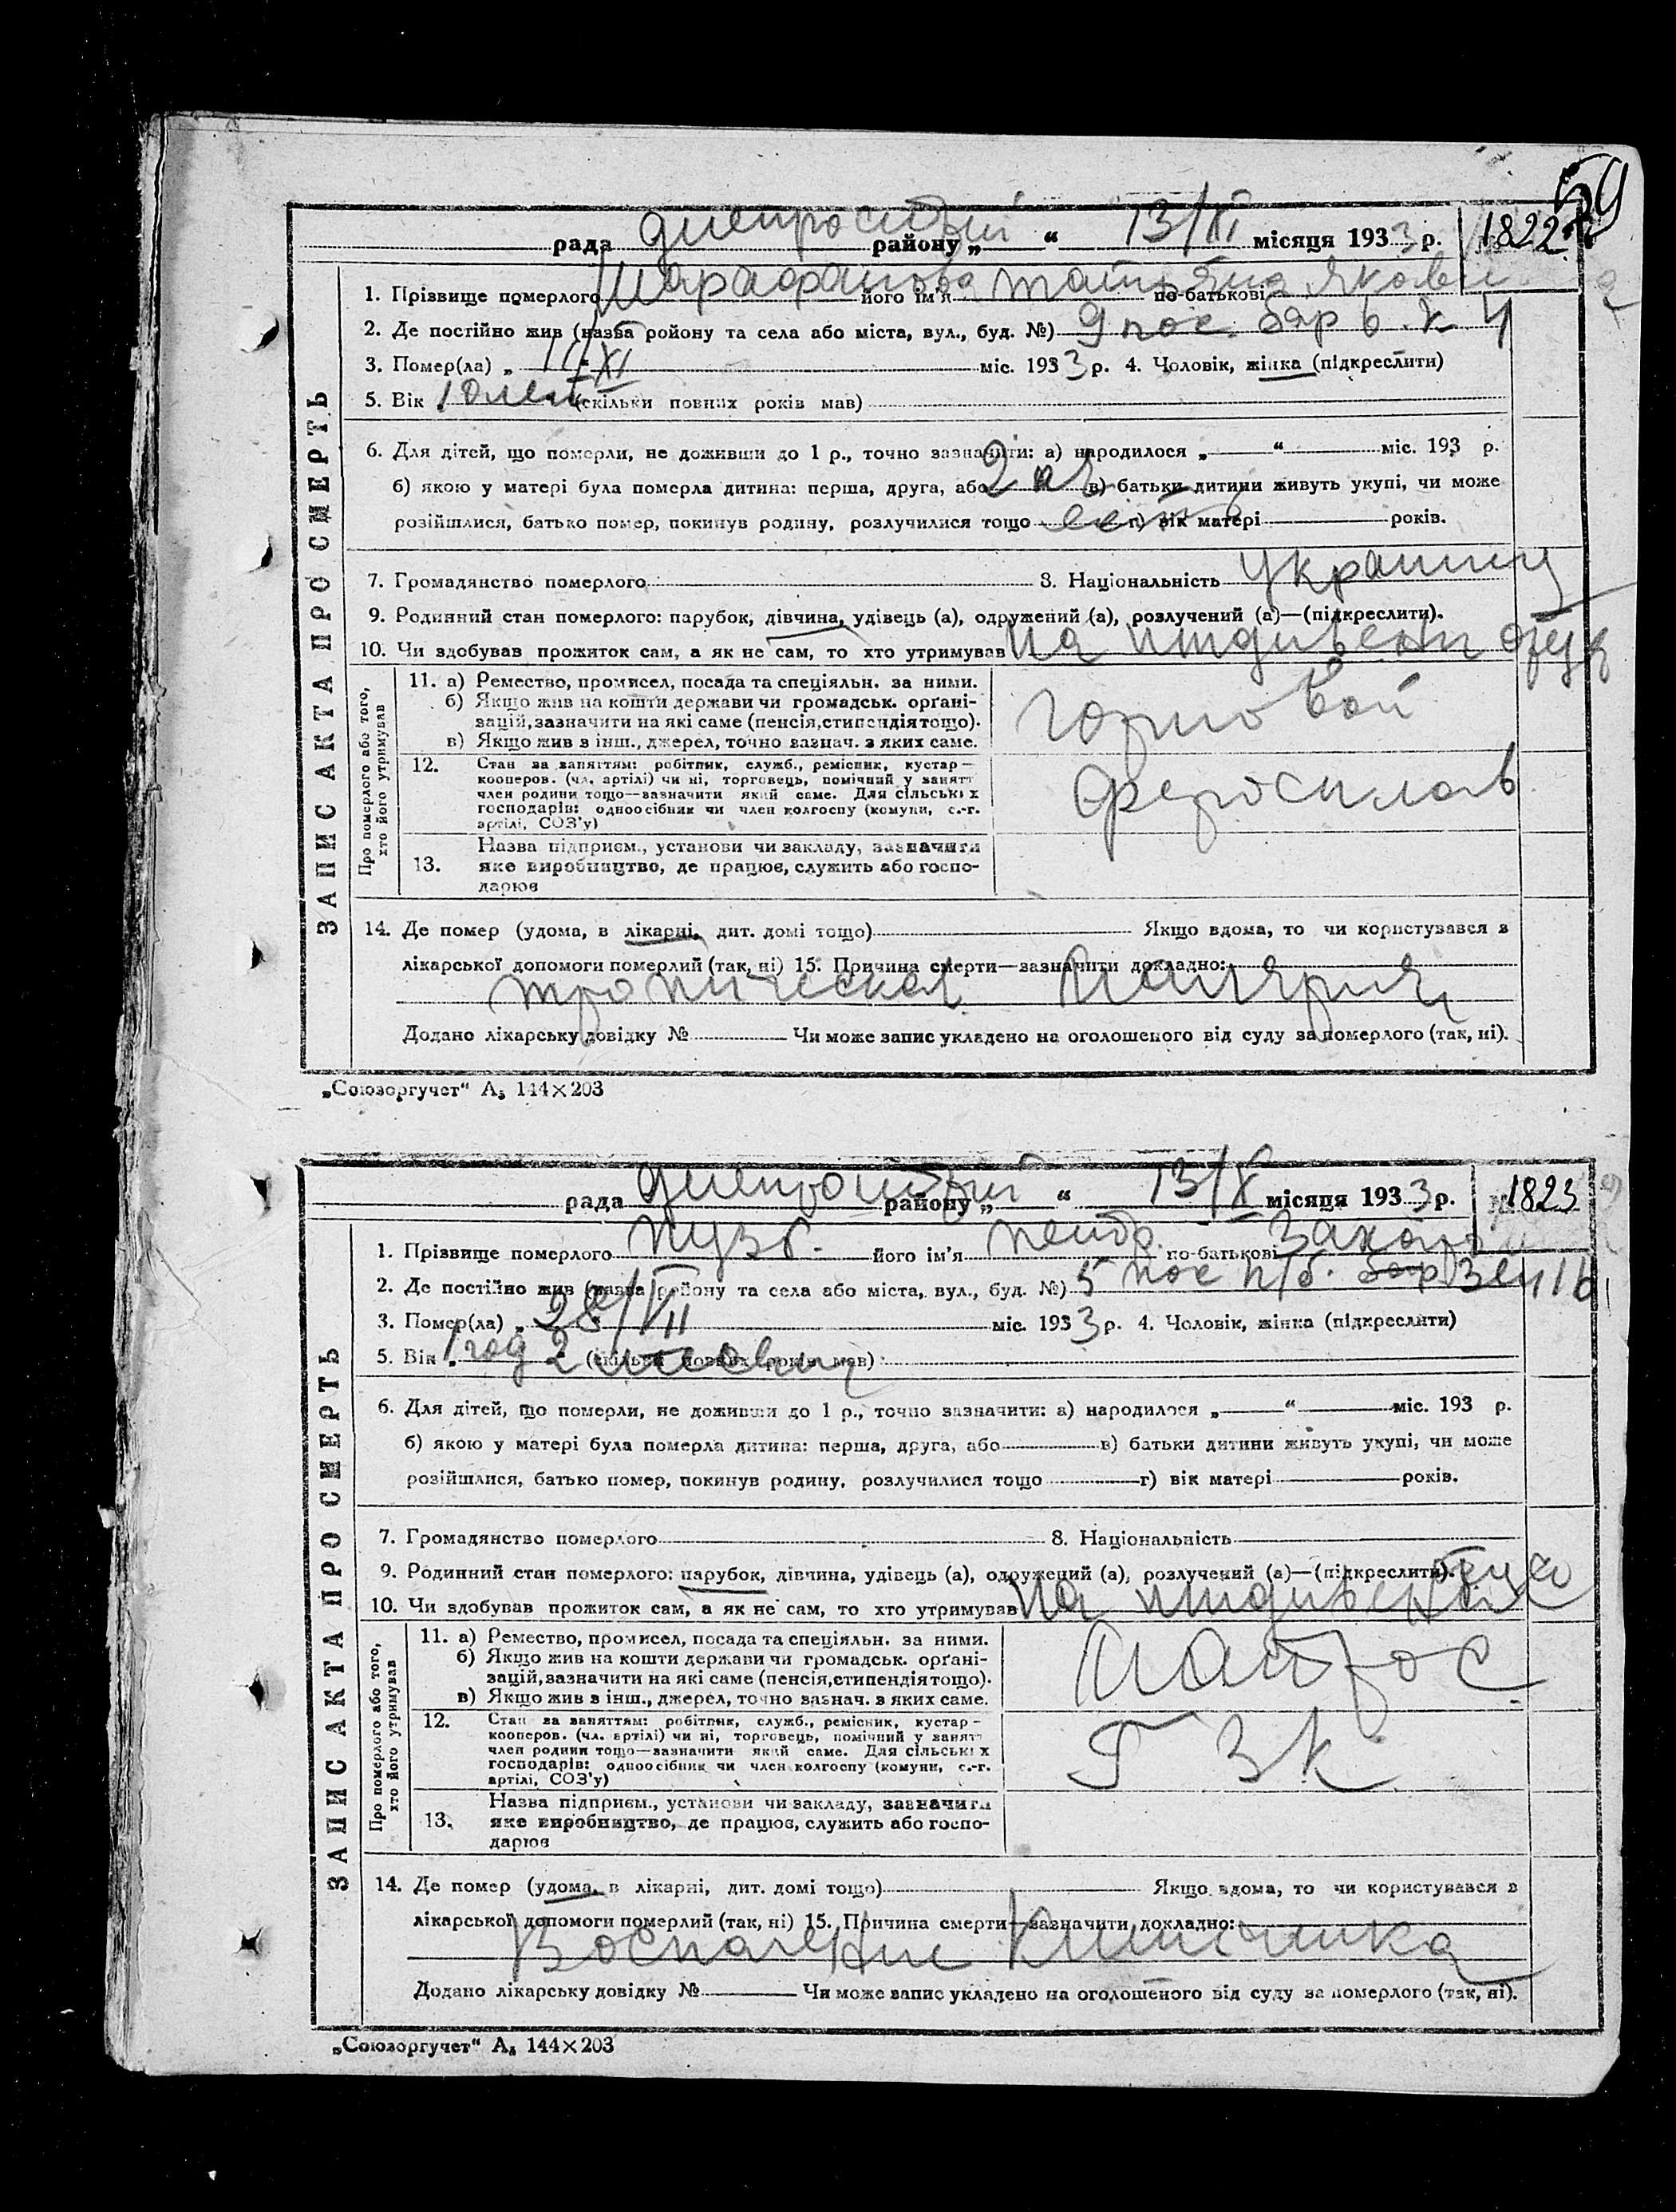 59
рада Днепростройский району „ “ 13/XI місяця 1933 р. № 1822
1. Прізвище померлого Шарафанова його ім'я Татьяна по-батькові Яковл
2. Де постійно жив (назва ройону та села або міста, вул., буд. №) 9 пос. бар 6 к 4
3. Помер(ла) „ 11/XI міс. 1933 р. 4. Чоловік, жінка (підкреслити)
5. Вік 10 лет (скільки повних років мав)
6. Для дітей, що померли, не доживши до 1 р., точно зазначити: а) народилося „ “ міс. 193 р.
б) якою у матері була померла дитина: перша, друга, або 2 в) батьки дитини живуть укупі, чи може
розійшлися, батько помер, покинув родину, розлучилися тощо г) вік матері років.
7. Громадянство померлого 8. Національність украинц
9. Родинний стан померлого: парубок, дівчина, удівець (а), одружений (а), розлучений (а)—(підкреслити).
10. Чи здобував прожиток сам, а як не сам, то хто утримував на иждивени отца
11. а) Ремество, промисел, посада та спеціяльн. за ними.
б) Якщо жив на кошти держави чи громадськ. орґані-
зацій, зазначити на які саме (пенсія, стипендія тощо).
в) Якщо жив з інш., джерел, точно зазнач. з яких саме.
горновой
12. Стан за заняттям: робітник, служб., ремісник, кустар—
кооперов. (чл. артілі) чи ні, торговець, помічний у занятт
член родини тощо—зазначити який саме. Для сільських
господарів: одноосібник чи член колгоспу (комуни, с.-г.
артілі, СОЗ'у)
Феросплав
Назва підприєм., установи чи закладу, зазначити
13. яке виробництво, де працює, служить або госпо-
дарює
14. Де помер (удома, в лікарні, дит. домі тощо) Якщо вдома, то чи користувався з
лікарської допомоги померлий (так, ні) 15. Причина смерти—зазначити докладно:
тропическая малярия
Додано лікарську довідку № Чи може запис укладено на оголошеного від суду за померлого (так, ні).
ЗАПИС АКТА ПРО СМЕРТЬ
Про померлого або того,
хто його утримував
„Союзоргучет“ А₅ 144×203
рада Днепростройский району „ “ 13/X місяця 1933 р. № 1823
1. Прізвище померлого Пузь його ім'я Петр. по-батькові Захар
2. Де постійно жив (назва району та села або міста, вул., буд. №) 5 пос п/б.
3. Помер(ла) „ 28/VII міс. 1933 р. 4. Чоловік, жінка (підкреслити)
5. Вік „ 1 год 2 месяц (скільки повних років мав)
6. Для дітей, що померли, не доживши до 1 р., точно зазначити: а) народилося „ “ міс. 193 р.
б) якою у матері була померла дитина: перша, друга, або в) батьки дитини живуть укупі, чи може
розійшлися, батько помер, покинув родину, розлучилися тощо г) вік матері років.
7. Громадянство померлого 8. Національність
9. Родинний стан померлого: парубок, дівчина, удівець (а), одружений (а), розлучений (а)—(підкреслити).
10. Чи здобував прожиток сам, а як не сам, то хто утримував на иждивени отца
11. а) Ремество, промисел, посада та спеціяльн. за ними.
б) Якщо жив на кошти держави чи громадськ. орґані-
зацій, зазначити на які саме (пенсія, стипендія тощо).
в) Якщо жив з інш., джерел, точно зазнач. з яких саме.
матрос
12. Стан за заняттям: робітник, служб., ремісник, кустар—
кооперов. (чл. артілі) чи ні, торговець, помічний у занятт
член родини тощо—зазначити який саме. Для сільських
господарів: одноосібник чи член колгоспу (комуни, с.-г.
артілі, СОЗ'у)
Г З К
Назва підприєм., установи чи закладу, зазначити
13. яке виробництво, де працює, служить або госпо-
дарює
14. Де помер (удома, в лікарні, дит. домі тощо) Якщо вдома, то чи користувався з
лікарської допомоги померлий (так, ні) 15. Причина смерти—зазначити докладно:
Воспаление Кишечника
Додано лікарську довідку № Чи може запис укладено на оголошеного від суду за померлого (так, ні).
ЗАПИС АКТА ПРО СМЕРТЬ
Про померлого або того,
хто його утримував
„Союзоргучет“ А₅ 144×203